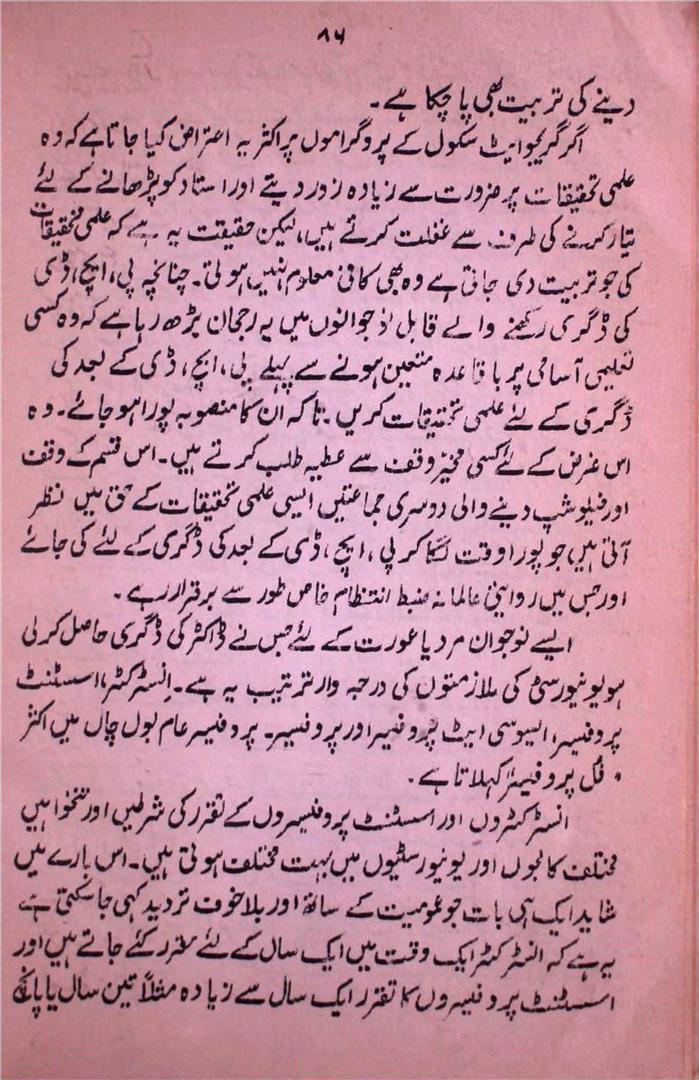 ۸۶
دینے کی تربیت بھی پا چکا ہے۔
اگر گریجوایٹ سکول کے پروگراموں پر اکثر یہ اعتراض کیا جاتا ہے کہ وہ
علمی تحقیقات پر ضرورت سے زیادہ زور دیتے اور استاد کو پڑھانے کے لئے
تیار کرنے کی طرف سے غفلت کرتے ہیں، لیکن حقیقت یہ ہے کہ علمی تحقیقات
کی جو تربیت دی جاتی ہے وہ بھی کافی معلوم نہیں ہوتی۔ چنانچہ پی، ایچ، ڈی
کی ڈگری رکھنے والے قابل نوجوانوں میں یہ رجحان بڑھ رہا ہے کہ وہ کسی
تعلیمی آسامی پر باقاعدہ متعین ہونے سے پہلے پی، ایچ، ڈی کے بعد کی
ڈگری کے لئے علمی تحقیقات کریں۔ تاکہ ان کا منصوبہ پورا ہو جائے۔ وہ
اس غرض کے لئے کسی مخیّر وقف سے عطیہ طلب کرتے ہیں۔ اس قسم کے وقف
اور فیلوشپ دینے والی دوسری جماعتیں ایسی علمی تحقیقات کے حق میں نظر
آتی ہیں جو پورا وقت لگا کر پی، ایچ، ڈی کے بعد کی ڈگری کے لئے کی جائے
اور جس میں روایتی عالمانہ ضبط انتظام خاص طور سے برقرار رہے۔
ایسے نوجوان مرد یا عورت کے لئے جس نے ڈاکٹر کی ڈگری حاصل کر لی
ہو یونیورسٹی کی ملازمتوں کی درجہ وار ترتیب یہ ہے۔ انسٹرکٹر، اسسٹنٹ
پروفیسر، ایسوسی ایٹ پروفیسر اور پروفیسر۔ پروفیسر عام بول چال میں اکثر
"فل پروفیسر" کہلاتا ہے۔
انسٹرکٹروں اور اسسٹنٹ پروفیسروں کے تقرر کی شرطیں اور تنخواہیں
مختلف کالجوں اور یونیورسٹیوں میں بہت مختلف ہوتی ہیں۔ اس بارے میں
شاید ایک ہی بات جو عمومیت کے ساتھ اور بلا خوف تردید کہی جا سکتی ہے
یہ ہے کہ انسٹرکٹر ایک وقت میں ایک سال کے لئے مقرر کئے جاتے ہیں اور
اسسٹنٹ پروفیسروں کا تقرر ایک سال سے زیادہ مثلاً تین سال یا پانچ